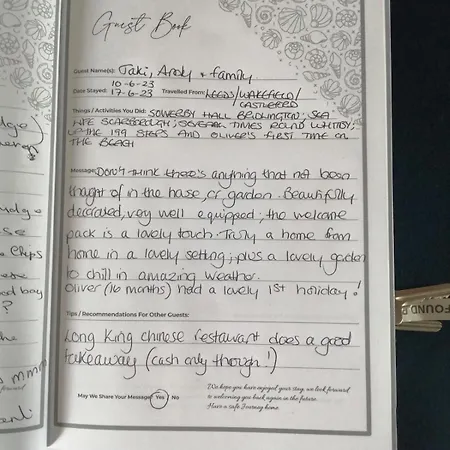 Guest Book
Guest Name(s): Jaki, Andy + family
10-6-23
Date Stayed: 17-6-23 Travelled From: LEEDS/WAKEFIELD/
CASTLEFORD
Things / Activities You Did: SOWERBY HALL BRIDLINGTON; SEA
LIFE SCARBOROUGH; SEVERAL TIMES ROUND WHITBY;
UP THE 199 STEPS AND OLIVER'S FIRST TIME ON
THE BEACH
Message: Don't think there's anything that not been
thought of in the house, or garden. Beautifully
decorated, very well equipped; the welcome
pack is a lovely touch. Truly a home from
home in a lovely setting; plus a lovely garden
to chill in amazing weather.
Oliver (16 months) had a lovely 1st holiday!
Tips / Recommendations For Other Guests:
Long King chinese restaurant does a good
takeaway (cash only though!)
May We Share Your Message? Yes No
We hope you have enjoyed your stay, we look forward
to welcoming you back again in the future.
Have a safe Journey home.
FOUND